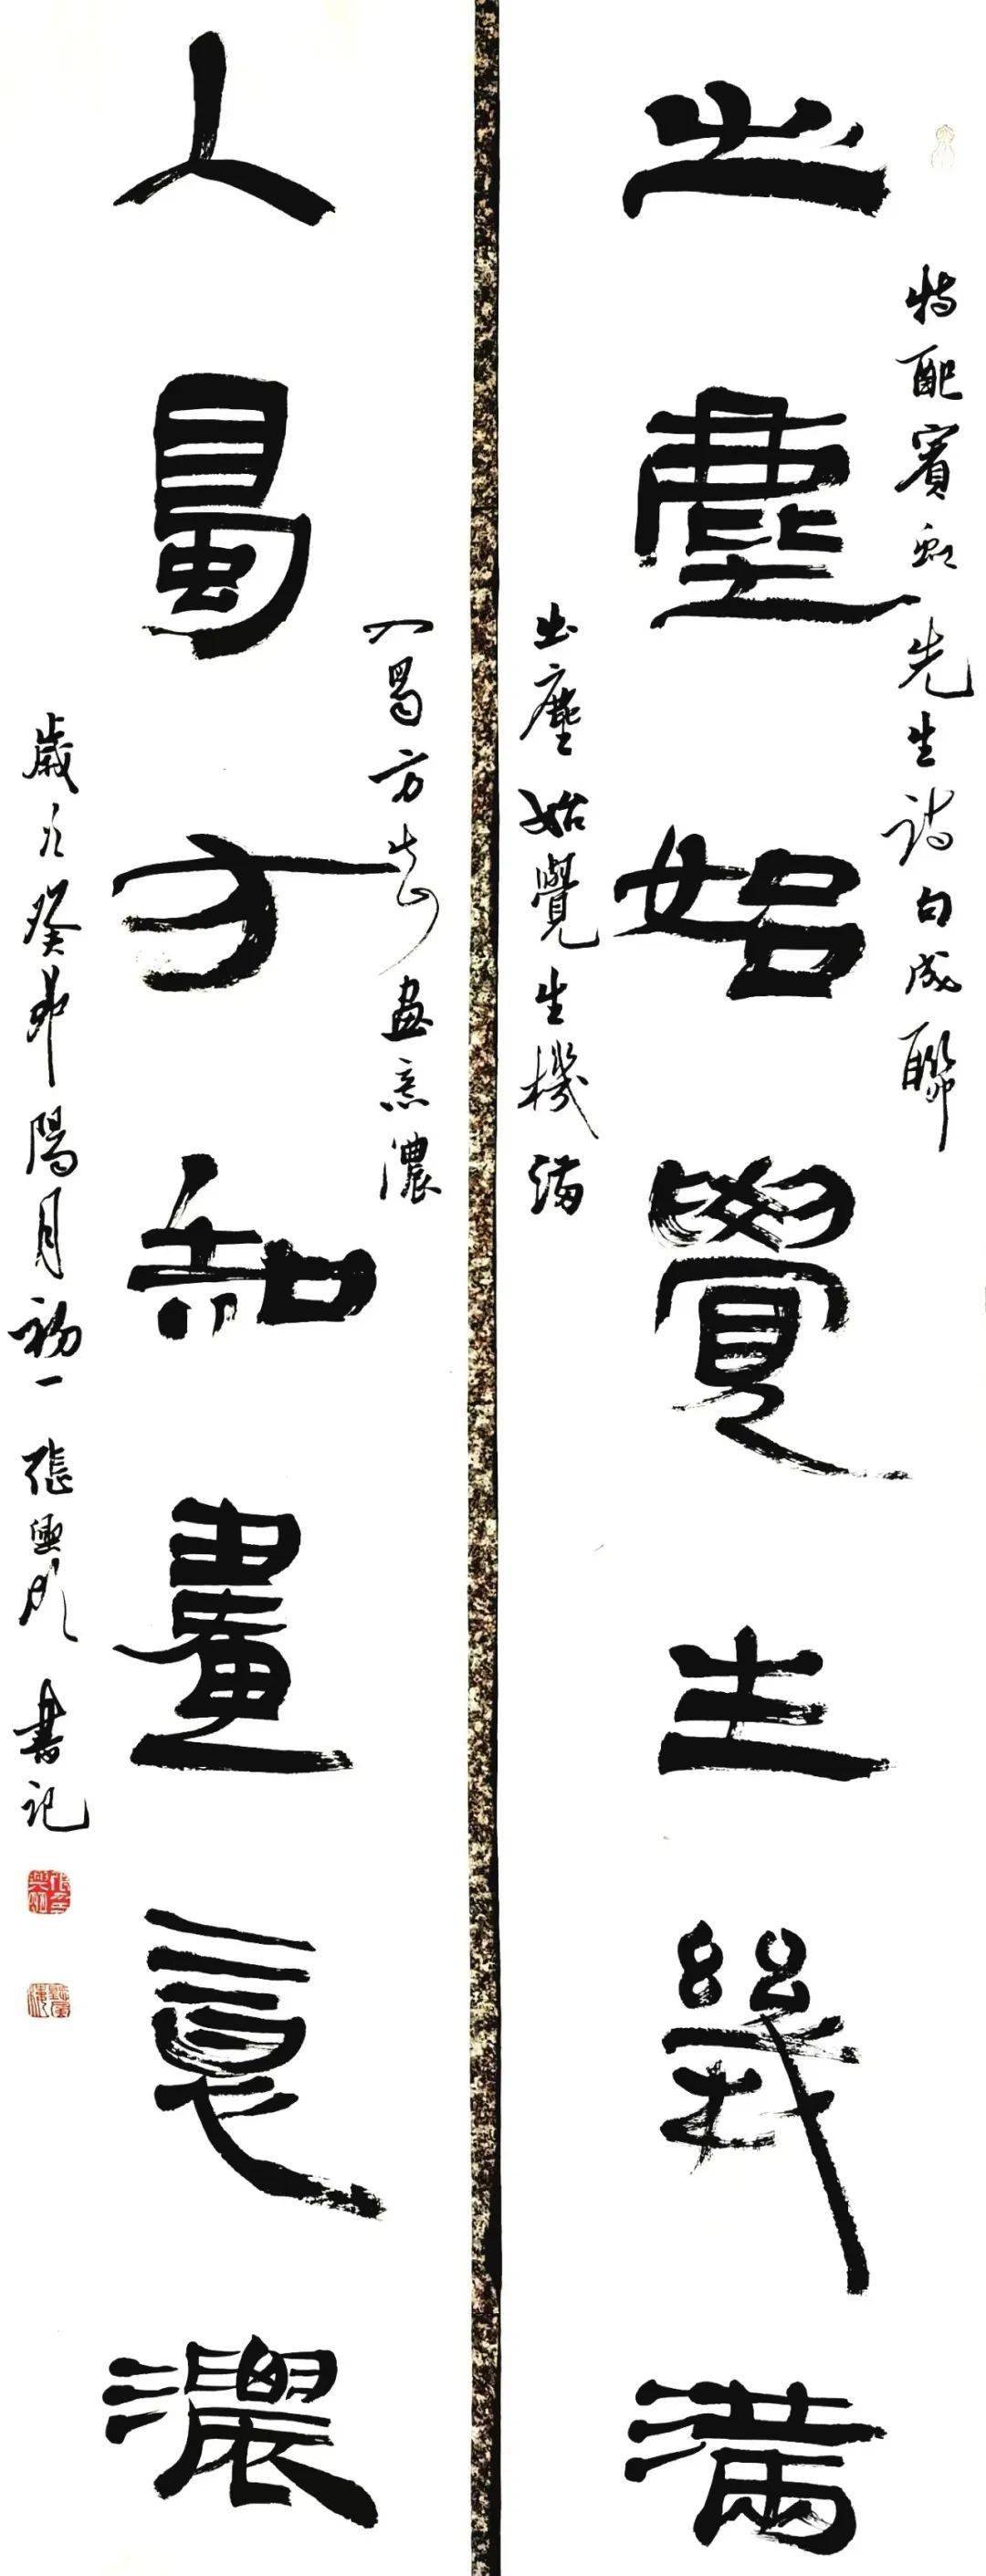 特配賓虹先生詩句成聯
出塵始覺生機滿
出塵始覺生機滿
入蜀方知畫意濃
入蜀方知畫意濃
歲次癸卯陽月初一張興書記